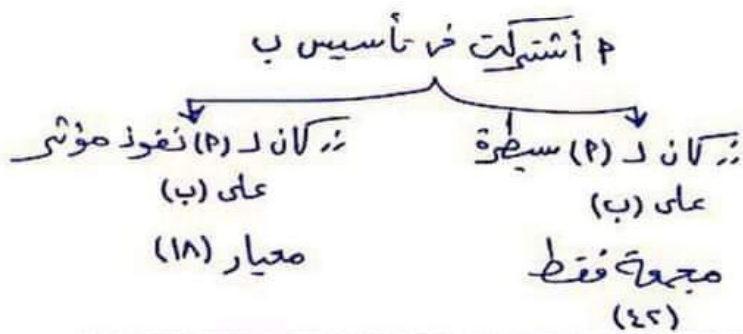 أ أشتركت فى تأسيس ب
إذ كان لـ (أ) سيطرة
على (ب)
مجمعة فقط
(٤٢)
إذ كان لـ (أ) نفوذ مؤثر
على (ب)
معيار (١٨)